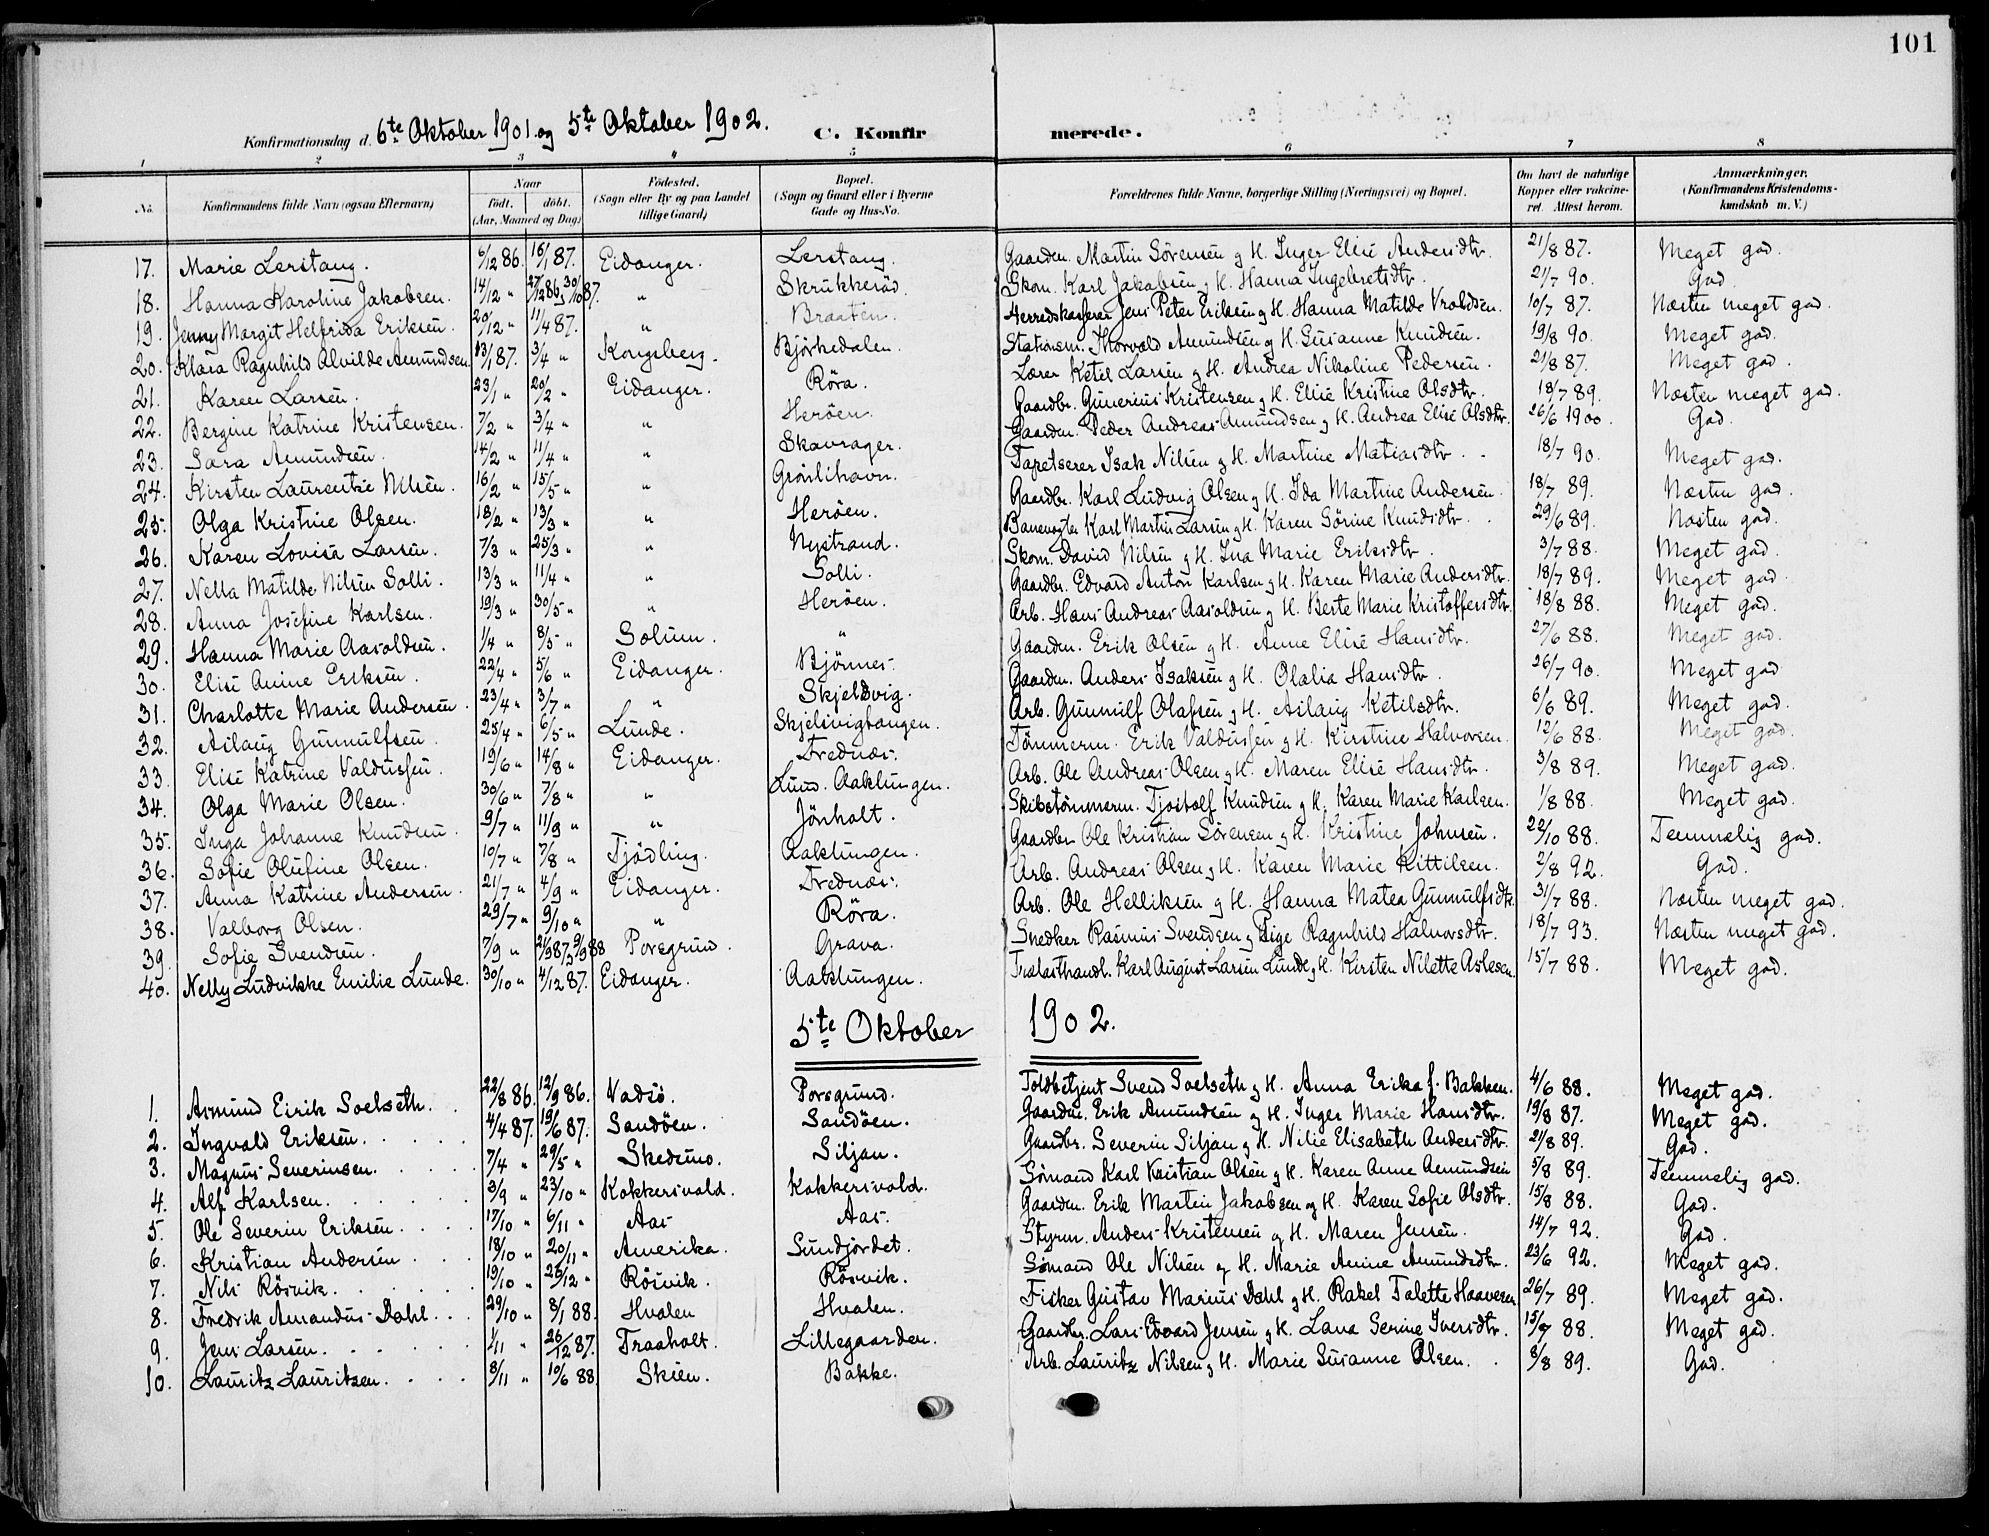 101
Konfirmationsdag d. 6te Oktober 1901. og 5te Oktober 1902. C. Konfirmerede.
1 2 3 4 5 6 7 8
No. Konfirmandens fulde Navn (ogsaa Efternavn) Naar født. døbt. (Aar, Maaned og Dag) Fødested. (Sogn eller By og paa Landet tillige Gaard) Bopæl. (Sogn og Gaard eller i Byerne Gade og Hus-No. Forældrenes fulde Navne, borgerlige Stilling (Næringsvei) og Bopæl. Om havt de naturlige Kopper eller vakcineret. Attest herom. Anmærkninger. (Konfirmandens Kristendomskundskab m. V.)
17. Marie Lerstang. 6/12 86. 16/1 87. Eidanger. Lerstang. Gaardm. Martin Sörensen og H. Inger Elise Andersdtr. 21/8 87. Meget god.
18. Hanna Karoline Jakobsen. 14/12 " 27/12 86, 30/10 87. " Skrukkeröd. Skom. Karl Jakobsen og H. Hanna Ingebretsdtr. 21/7 90. God.
19. Jenny Margit Helfrida Eriksen. 20/12 " 11/4 87. " Braaten. Herredskasserer Jens Peter Eriksen og H. Hanna Matilde Vroldsen. 10/7 87. Næsten meget god.
20. Klara Ragnhild Alvilde Amundsen 13/1 87. 3/4 " Kongsberg. Björkedalen. Stationsm. Thorvald Amundsen og H. Susanne Knudsen. 19/8 90. Meget god.
21. Karen Larsen. 23/1 " 20/2 " Eidanger. Röra. Lærer Ketil Larsen og H. Andrea Nikoline Pedersen. 21/8 87. Meget god.
22. Bergine Katrine Kristensen. 7/2 " 3/4 " " Heröen. Gaardbr. Gunerius Kristensen og H. Elise Kristine Olsdtr. 18/7 89. Næsten meget god.
23. Sara Amundsen. 14/2 " 11/4 " " Skavrager. Gaardm. Peder Andreas Amundsen og H. Andrea Elise Olsdtr. 26/6 1900. God.
24. Kirsten Laurentze Nilsen. 16/2 " 15/5 " " Gröslihavn. Tapetserer Isak Nilsen og H. Martine Matiasdtr. 18/7 90. Meget god.
25. Olga Kristine Olsen. 18/2 " 13/3 " " Heröen. Gaardbr. Karl Ludvig Olsen og H. Ida Martine Andersen. 18/7 89. Næsten god.
26. Karen Lovisa Larsen. 7/3 " 25/3 " " Nystrand. Banevogter Karl Martin Larsen og H. Karen Sörine Knudsdtr. 29/6 89. Næsten god.
27. Nella Matilde Nilsen Solli. 13/3 " 11/4 " " Solli. Skom. David Nilsen og H. Ina Marie Eriksdtr. 3/7 88. Meget god.
28. Anna Josefine Karlsen. 19/3 " 30/5 " " Heröen. Gaardbr. Edvard Anton Karlsen og H. Karen Marie Andersdtr. 18/7 89. Meget god.
29. Hanna Marie Aasoldsen. 1/4 " 8/5 " Solum. " Arb. Hans Andreas Aasoldsen og H. Berte Marie Kristoffersdtr. 18/8 88. Meget god.
30. Elise Anine Eriksen. 22/4 " 5/6 " Eidanger. Björnnes. Gaardm. Erik Olsen og H. Anne Elise Hansdtr. 27/6 88. Meget god.
31. Charlotte Marie Andersen. 23/4 " 3/7 " " Skjelsvig. Gaardm. Anders Isaksen og H. Olalia Hansdtr. 26/7 90. Meget god
32. Ailaug Gunnulfsen. 25/4 " 6/5 " Lunde. Skjelsvigtangen. Arb. Gunnulf Olafsen og H. Ailaug Ketilsdtr. 6/6 89. Meget god.
33. Elise Katrine Valdussen. 19/6 " 14/8 " Eidanger. Trednæs. Tömmerm. Erik Valdussen og H. Kirstine Halvorsen. 12/6 88. Meget god.
34. Olga Marie Olsen. 30/6 " 7/8 " " Lund. Aaklungen. Arb. Ole Andreas Olsen og H. Maren Elise Hansdtr. 3/8 89. Meget god.
35. Inga Johanne Knudsen. 9/7 " 11/9 " " Jönholt. Skibstömmerm. Tjostolf Knudsen og H. Karen Marie Karlsen. 1/8 88. Meget god.
36. Sofie Olufine Olsen. 10/7 " 7/8 " Tjödling. Aaklungen. Gaardbr. Ole Kristian Sörensen og H. Kristine Johnsen. 22/10 88. Temmelig god.
37. Anna Katrine Andersen. 21/7 " 4/9 " Eidanger. Trednæs. Arb. Andreas Olsen og H. Karen Marie Kittilsen. 2/8 92. God.
38. Valborg Olsen. 29/7 " 9/10 " " Röra. Arb. Ole Helliksen og H. Hanna Matea Gunnulfsdtr. 31/7 88. Næsten meget god.
39. Sofie Svendsen. 7/9 " 21/9 87, 3/9 88 Porsgrund. Grava. Snedker Rasmus Svendsen og Pige Ragnhild Halvorsdtr. 18/7 93. Næsten meget god.
40. Nelly Ludvikke Emilie Lunde. 30/10 " 4/12 87. Eidanger. Aaklungen. Trælasthandl. Karl August Larsen Lunde og H. Kirsten Nilette Aslesen. 15/7 88. Meget god.
5te Oktober 1902.
1. Asmund Eirik Soelseth. 22/8 86. 12/9 86. Vadsö. Porsgrund. Toldbetjent Svend Soelseth og H. Anna Erika f. Bakken. 4/6 88. Meget god.
2. Ingvald Eriksen. 4/4 87. 19/6 87. Sandöen. Sandöen. Gaardm. Erik Amundsen og H. Inger Marie Hansdtr. 19/8 87. Meget god.
3. Magnus Severinsen. 7/4 " 29/5 " Skedsmo. Siljan. Gaardbr. Severin Siljan og H. Nilie Elisabeth Andersdtr. 21/8 89. God.
4. Alf Karlsen. 3/9 " 23/10 " Kokkersvold. Kokkersvold. Sömand Karl Kristian Olsen og H. Karen Anne Asmundsen 5/8 89. Temmelig god.
5. Ole Severin Eriksen. 17/10 " 6/11 " Aas Aas. Gaardm. Erik Martin Jakobsen og H. Karen Sofie Olsdtr. 15/8 88. God.
6. Kristian Andersen 18/10 " 20/11 " Amerika. Sundjordet. Styrm. Anders Kristensen og H. Maren Jensen. 14/7 92. God.
7. Nils Rösvik. 19/10 " 26/12 " Rösvik. Rösvik. Sömand Ole Nilsen og H. Marie Anine Amundsdtr. 23/6 92. Meget god.
8. Fredrik Amandus Dahl. 29/10 " 8/1 88. Hvalen Hvalen. Fisker Gustav Marius Dahl og H. Rakel Talette Haavesen 26/7 89. Meget god.
9. Jens Larsen. 1/11 " 26/12 87. Traaholt. Lillegaarden. Gaardbr. Lars Edvard Jensen og H. Lava Serine Iversdtr. 15/7 88. Meget god.
10. Lauritz Lauritzen. 8/11 " 10/6 88. Skien. Bakke. Arb. Lauritz Nilsen og H. Marie Susanne Olsen. 8/8 89. God.